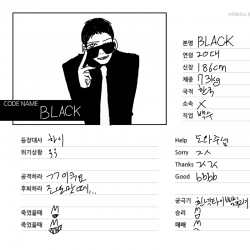 CODE NAME
BLACK
본명 BLACK
연령 20대
신장 186cm
체중 73kg
국적 한국
소속 X
직업 백수
등장대사 하이
위기상황 ㅎㅎ
공격하라 ㄱㄱ이쿠요
후퇴하라
죽었을때
죽였을때
Help 도와주셈
Sorry ㅈㅅ
Thanks ㄱㅅㄱㅅ
Good bbbb
궁극기
승리
패배